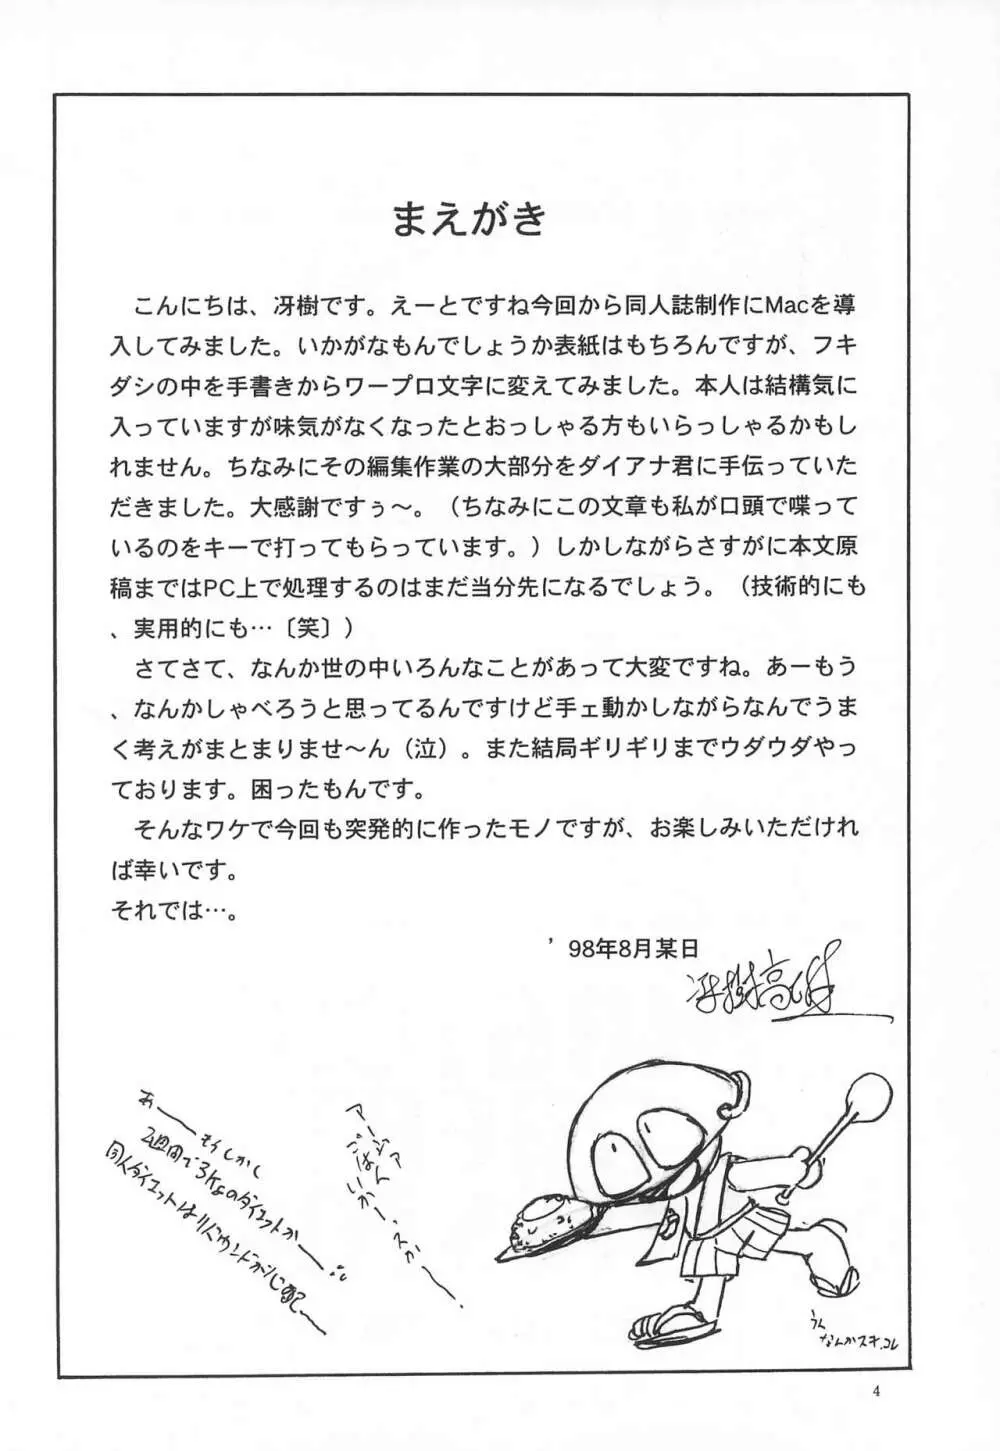 まえがき
　こんにちは、冴樹です。えーとですね今回から同人誌制作にMacを導
入してみました。いかがなもんでしょうか表紙はもちろんですが、フキ
ダシの中を手書きからワープロ文字に変えてみました。本人は結構気に
入っていますが味気がなくなったとおっしゃる方もいらっしゃるかもし
れません。ちなみにその編集作業の大部分をダイアナ君に手伝っていた
だきました。大感謝ですぅ〜。（ちなみにこの文章も私が口頭で喋って
いるのをキーで打ってもらっています。）しかしながらさすがに本文原
稿まではPC上で処理するのはまだ当分先になるでしょう。（技術的にも
、実用的にも…〔笑〕）
　さてさて、なんか世の中いろんなことがあって大変ですね。あーもう
、なんかしゃべろうと思ってるんですけど手ェ動かしながらなんでうま
く考えがまとまりませ〜ん（泣）。また結局ギリギリまでウダウダやっ
ております。困ったもんです。
　そんなワケで今回も突発的に作ったモノですが、お楽しみいただけれ
ば幸いです。
それでは…。
’98年8月某日
冴樹高雄
アージァ
ごはん
いかーっスかー、
あー
もしかし
2週間で3Kgのダイエットかー
同人ダイエットはリバウンドが心配〜
うん
なんかスキ、コレ
4